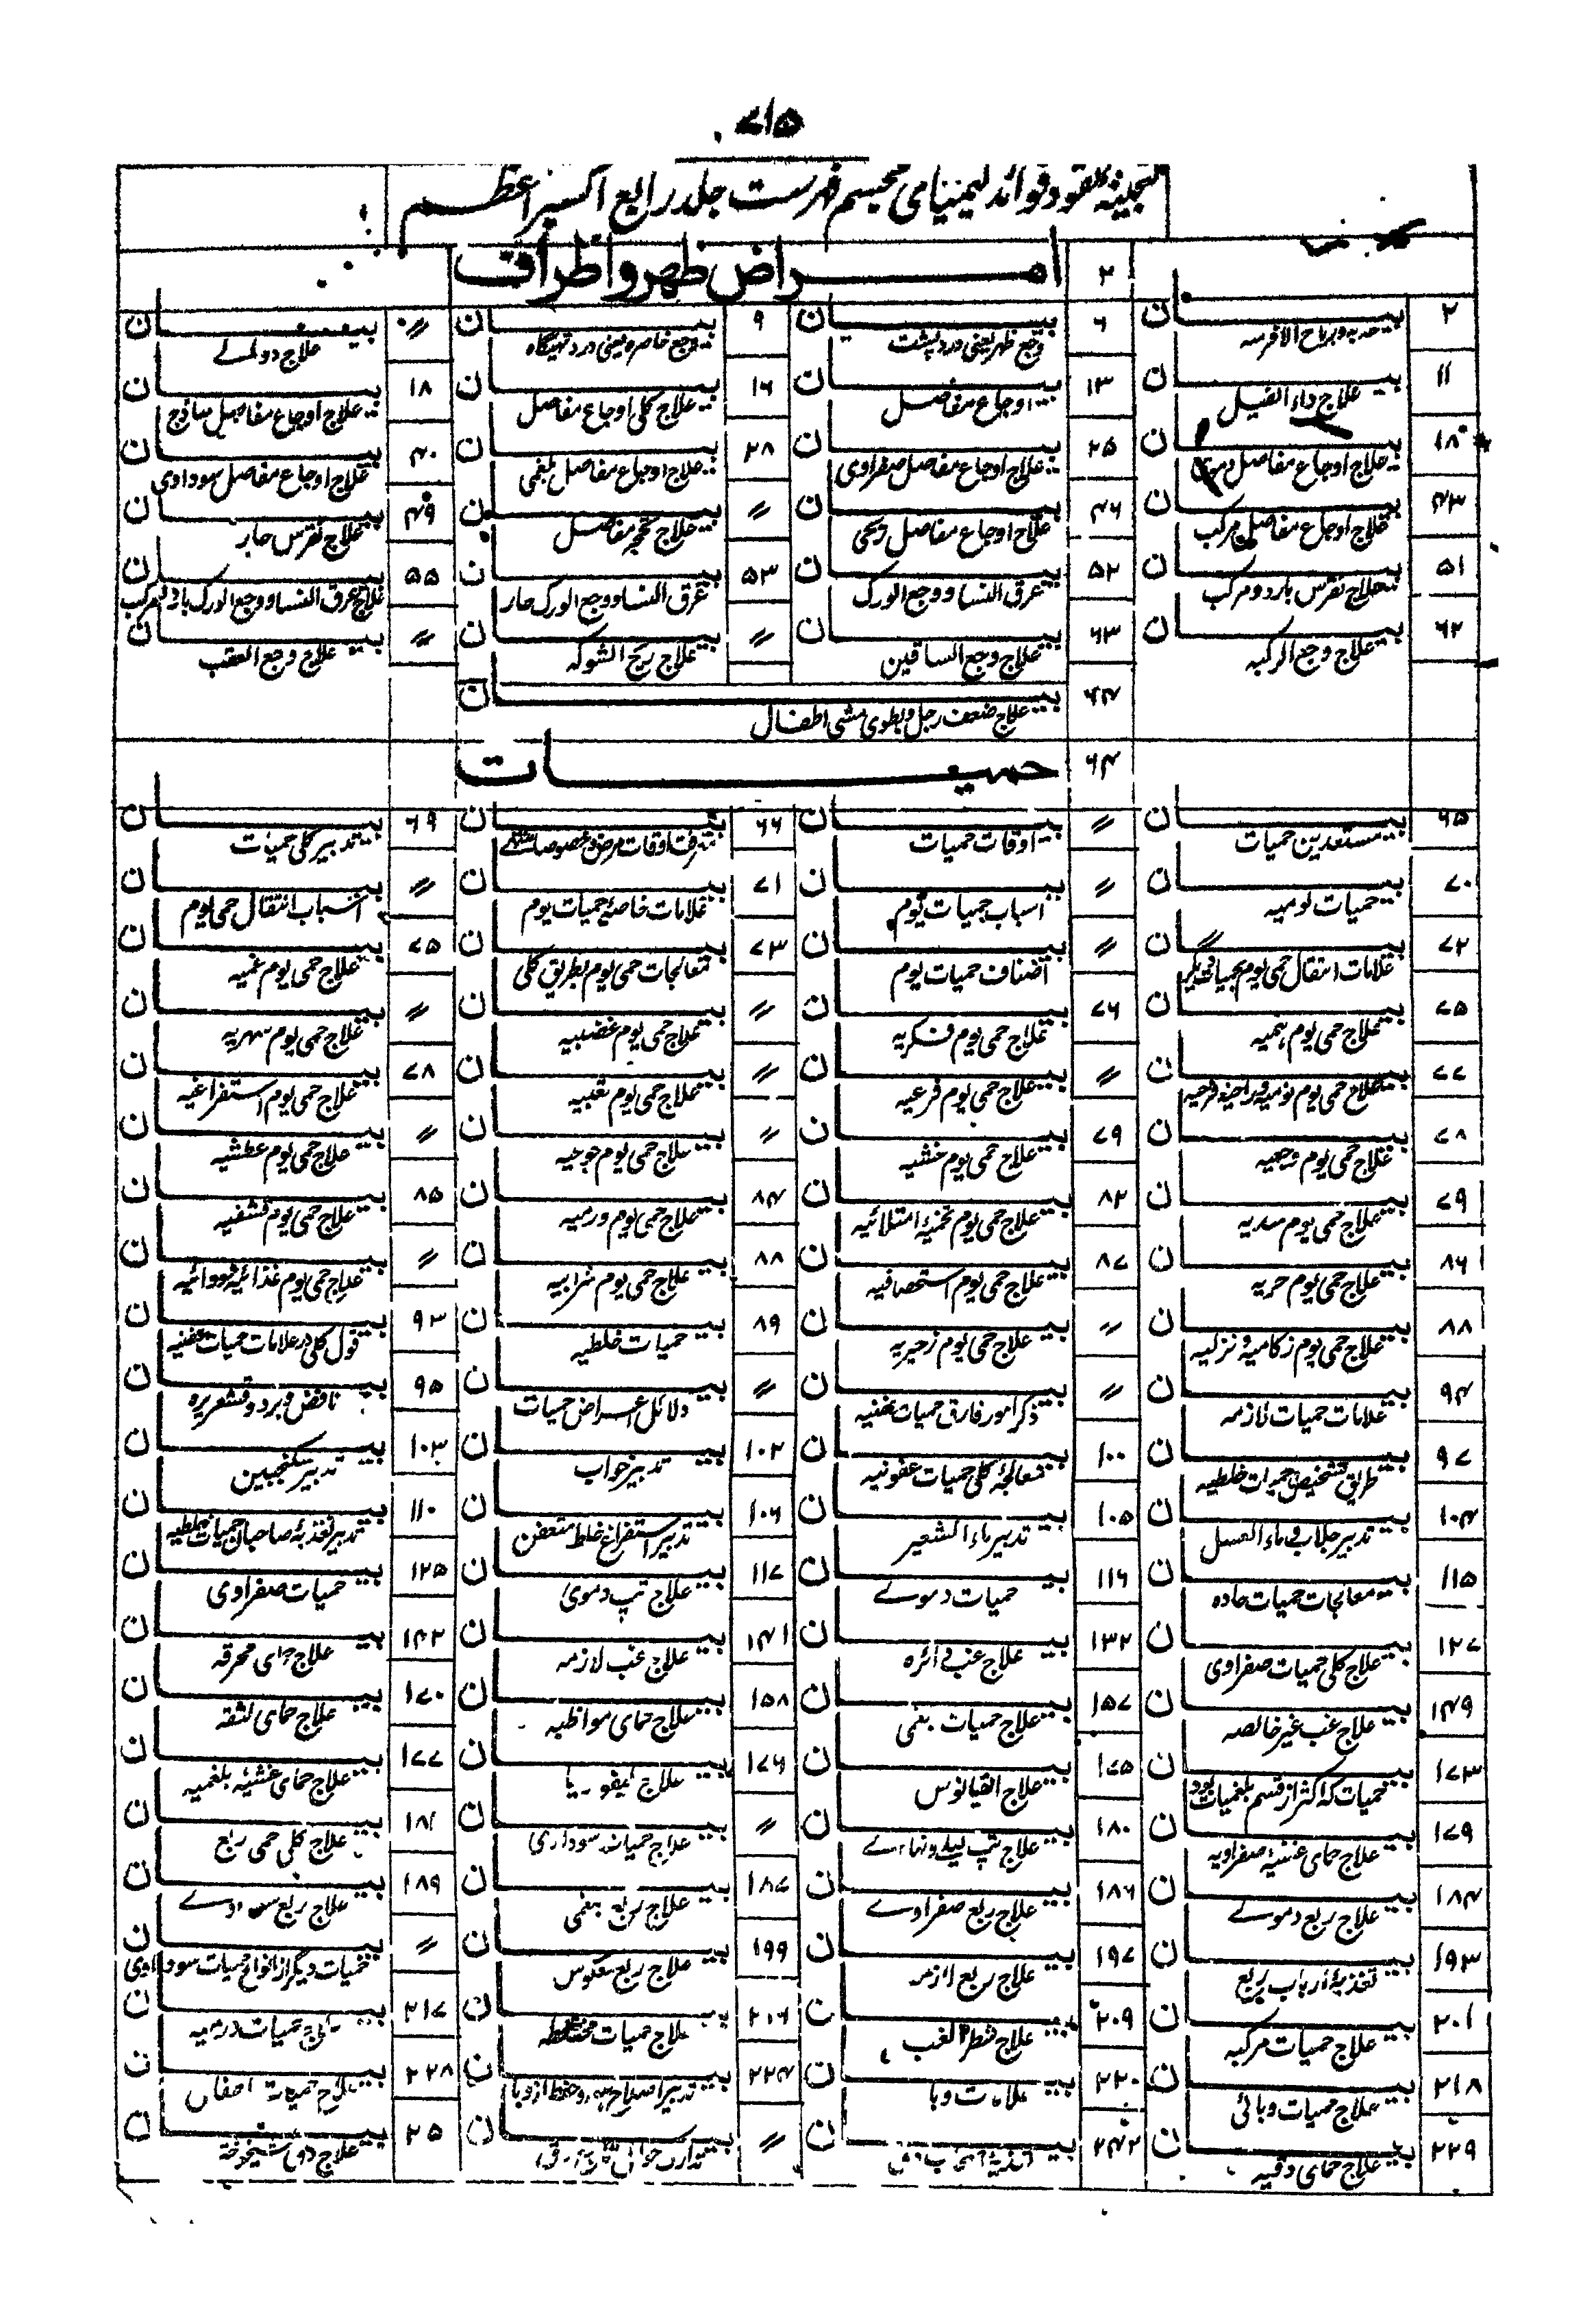 ۷۱۵
فهرست جلد رابع اکسیر اعظم
۲ امراض ظهر و اطراف
۲ بیان حدبه و ریاح الافرسه ۶ بیان وجع ظهر یعنی درد پشت ۹ بیان وجع خاصره یعنی درد تهیگاه 〃 بیان علاج دوالے
۱۱ بیان علاج داء الفیل ۱۳ بیان اوجاع مفاصل ۱۶ بیان علاج کلی اوجاع مفاصل ۱۸ بیان علاج اوجاع مفاصل ساذج
۱۸ بیان علاج اوجاع مفاصل ۲۵ بیان علاج اوجاع مفاصل صفراوی ۲۸ بیان علاج اوجاع مفاصل بلغمی ۴۰ بیان علاج اوجاع مفاصل سوداوی
۴۳ بیان علاج اوجاع مفاصل مرکب ۴۶ بیان علاج اوجاع مفاصل ریحی 〃 بیان علاج تحجر مفاصل ۴۹ بیان علاج نقرس حار
۵۱ بیان علاج نقرس بارد و مرکب ۵۲ بیان عرق النسا و وجع الورک ۵۳ بیان عرق النسا و وجع الورک حار ۵۵ بیان علاج عرق النسا و وجع الورک بارد و مرکب
۶۲ بیان علاج وجع الرکبه ۶۳ بیان علاج وجع الساقین 〃 بیان علاج ریح الشوکه 〃 بیان علاج وجع العقب
۶۴ بیان علاج ضعف رجل و بطوی مشی اطفال
۶۴ حمیات
۶۵ بیان مستعدین حمیات 〃 بیان اوقات حمیات ۶۶ بیان اوقات مرض ۶۹ بیان تدبیر کلی حمیات
۷۰ بیان حمیات یومیه 〃 بیان اسباب حمیات یوم ۷۱ بیان علامات خاصهٔ حمیات یوم 〃 بیان اسباب انتقال حمی یوم
۷۲ بیان علامات انتقال حمی یوم بحمیات دیگر 〃 بیان اصناف حمیات یوم ۷۳ بیان معالجات حمی یوم بطریق کلی ۷۵ بیان علاج حمی یوم غمیه
۷۵ بیان علاج حمی یوم همیه ۷۶ بیان علاج حمی یوم فکریه 〃 بیان علاج حمی یوم غضبیه 〃 بیان علاج حمی یوم سهریه
۷۷ بیان علاج حمی یوم نومیه و راحیه و فرحیه 〃 بیان علاج حمی یوم فزعیه 〃 بیان علاج حمی یوم تعبیه ۷۸ بیان علاج حمی یوم استفراغیه
۷۸ بیان علاج حمی یوم وجعیه ۷۹ بیان علاج حمی یوم غشیه 〃 بیان علاج حمی یوم جوعیه 〃 بیان علاج حمی یوم عطشیه
۷۹ بیان علاج حمی یوم سدیه ۸۲ بیان علاج حمی یوم تخمیهٔ امتلائیه ۸۴ بیان علاج حمی یوم ورمیه ۸۵ بیان علاج حمی یوم قشفیه
۸۶ بیان علاج حمی یوم حریه ۸۷ بیان علاج حمی یوم استحصافیه ۸۸ بیان علاج حمی یوم شرابیه 〃 بیان علاج حمی یوم غذائیه و دوائیه
۸۸ بیان علاج حمی یوم زکامیه و نزلیه 〃 بیان علاج حمی یوم زحیریه ۸۹ بیان حمیات خلطیه ۹۳ بیان قول کلی در علامات حمیات عفنیه
۹۴ بیان علامات حمیات لازمه 〃 بیان ذکر امور فارق حمیات عفنیه 〃 بیان دلائل اعراض حمیات ۹۵ بیان نافض و برد و قشعریره
۹۷ بیان طریق تشخیص حمیات خلطیه ۱۰۰ بیان معالجهٔ کلی حمیات عفونیه ۱۰۲ بیان تدبیر خواب ۱۰۳ بیان تدبیر سکنجبین
۱۰۴ بیان تدبیر جلاب و ماء العسل ۱۰۵ بیان تدبیر ماء الشعیر ۱۰۶ بیان تدبیر استفراغ خلط متعفن ۱۱۰ بیان تدبیر تغذیهٔ صاحبان حمیات خلطیه
۱۱۵ بیان معالجات حمیات حاده ۱۱۶ بیان حمیات دموے ۱۱۷ بیان علاج تپ دموی ۱۲۵ بیان حمیات صفراوی
۱۲۷ بیان علاج کلی حمیات صفراوی ۱۳۲ بیان علاج غب دائره ۱۴۱ بیان علاج غب لازمه ۱۴۲ بیان علاج حمای محرقه
۱۴۹ بیان علاج غب غیر خالصه ۱۵۷ بیان علاج حمیات بلغمی ۱۵۸ بیان علاج حمای مواظبه ۱۷۰ بیان علاج حمای لثقه
۱۷۳ بیان حمیات که اکثر از قسم بلغمیات بود ۱۷۵ بیان علاج انقیالوس ۱۷۶ بیان علاج لیفوریا ۱۷۷ بیان علاج حمای غشیهٔ بلغمیه
۱۷۹ بیان علاج حمای غشیهٔ صفراویه ۱۸۰ بیان علاج تپ لیلے و نهارے 〃 بیان علاج حمیات سوداوی ۱۸۱ بیان علاج کلی حمی ربع
۱۸۴ بیان علاج ربع دموے ۱۸۶ بیان علاج ربع صفراوے ۱۸۷ بیان علاج ربع بلغمی ۱۸۹ بیان علاج ربع
۱۹۳ بیان تغذیهٔ ارباب ربع ۱۹۷ بیان علاج ربع لازمه ۱۹۹ بیان علاج ربع معکوس 〃 بیان حمیات دیگر از انواع حمیات سوداوی
۲۰۱ بیان علاج حمیات مرکبه ۲۰۹ بیان علاج شطر الغب ۲۱۶ بیان علاج حمیات مختلطه ۲۱۷ بیان علاج حمیات ورمیه
۲۱۸ بیان علاج حمیات وبائی ۲۲۰ بیان علامات وبا ۲۲۴ بیان تدبیر اصلاح و حفظ از وبا ۲۲۸ بیان علاج حمیات
۲۲۹ بیان علاج حمای دقیه ۲۴۲ بیان 〃 بیان ۲۵ بیان علاج دق شیخوخة